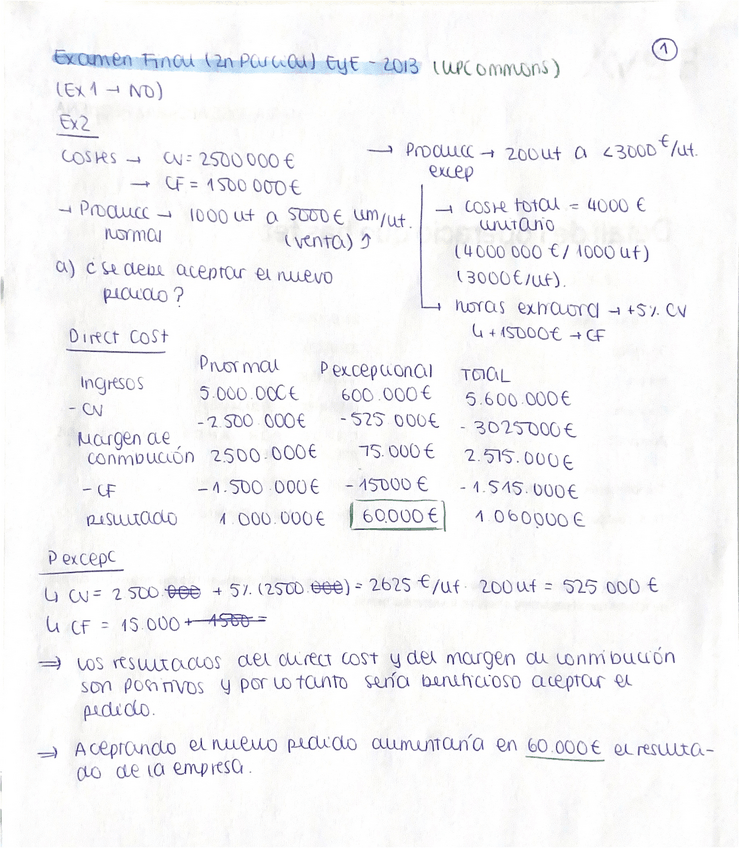 ①
Examen Final (2n Parcial) EyE - 2013 (UPCommons)
(Ex 1 → NO)
Ex2
COSTES → CV = 2500 000 €
→ CF = 1500 000 €
→ Producc → 1000 ut a 5000 € um/ut.
normal (venta) ↑
a) ¿se debe aceptar el nuevo
pedido?
→ Producc → 200 ut a <3000 €/ut.
excep
→ coste total = 4000 €
unitario
(4000 000 € / 1000 ut)
(3000 €/ut).
→ horas extraord → +5% CV
↳ +15000 € → CF
Direct Cost
Pnormal Pexcepcional TOTAL
Ingresos 5.000.000€ 600.000€ 5.600.000€
- CV -2.500.000€ -525.000€ - 3025000€
Margen de
contribución 2500.000€ 75.000€ 2.575.000€
- CF -1.500.000€ -15000€ -1.515.000€
resultado 1.000.000€ 60.000€ 1.060,000€
P except
↳ CV = 2 500.000 + 5% (2500.000) = 2625 €/ut · 200 ut = 525 000 €
↳ CF = 15.000 + 1500 =
⇒ Los resultados del direct cost y del margen de contribución
son positivos y por lo tanto sería beneficioso aceptar el
pedido.
⇒ Aceptando el nuevo pedido aumentaría en 60.000€ el resulta-
do de la empresa.